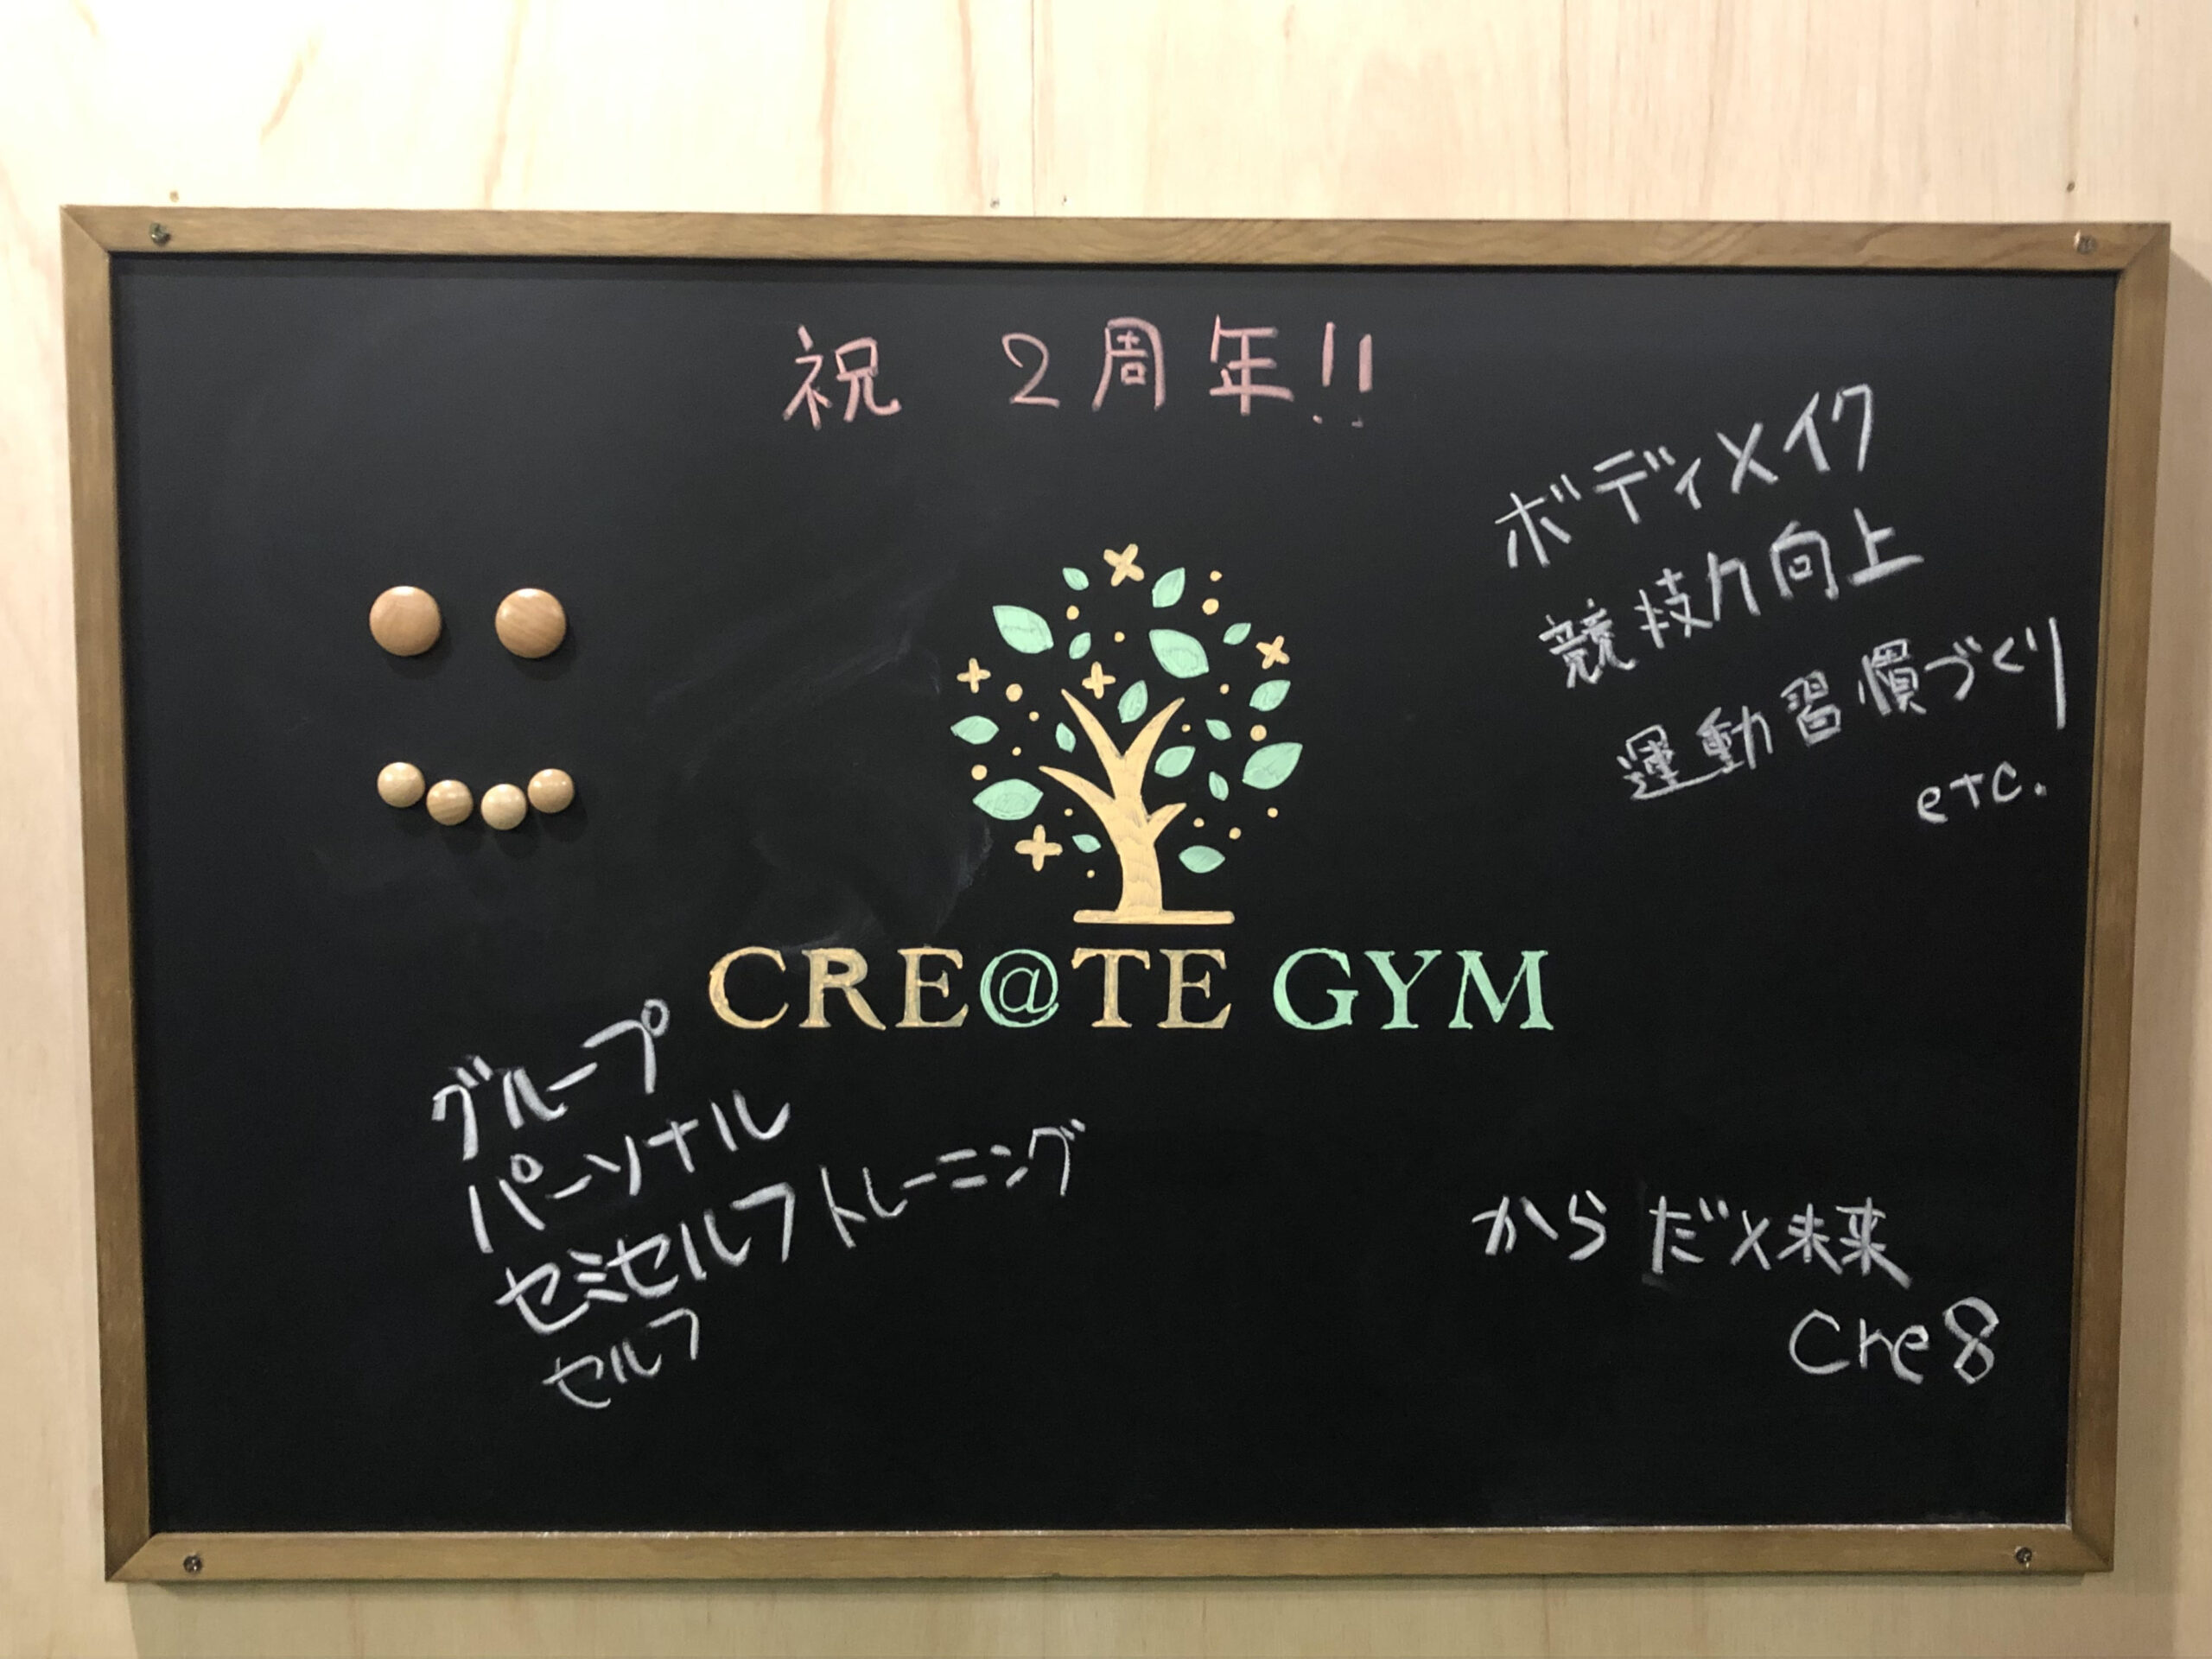 祝 2周年!!
ボディメイク
競技力向上
運動習慣づくり
etc.
CRE@TE GYM
グループ
パーソナル
セミセルフトレーニング
セルフ
からだ×未来
Cre8